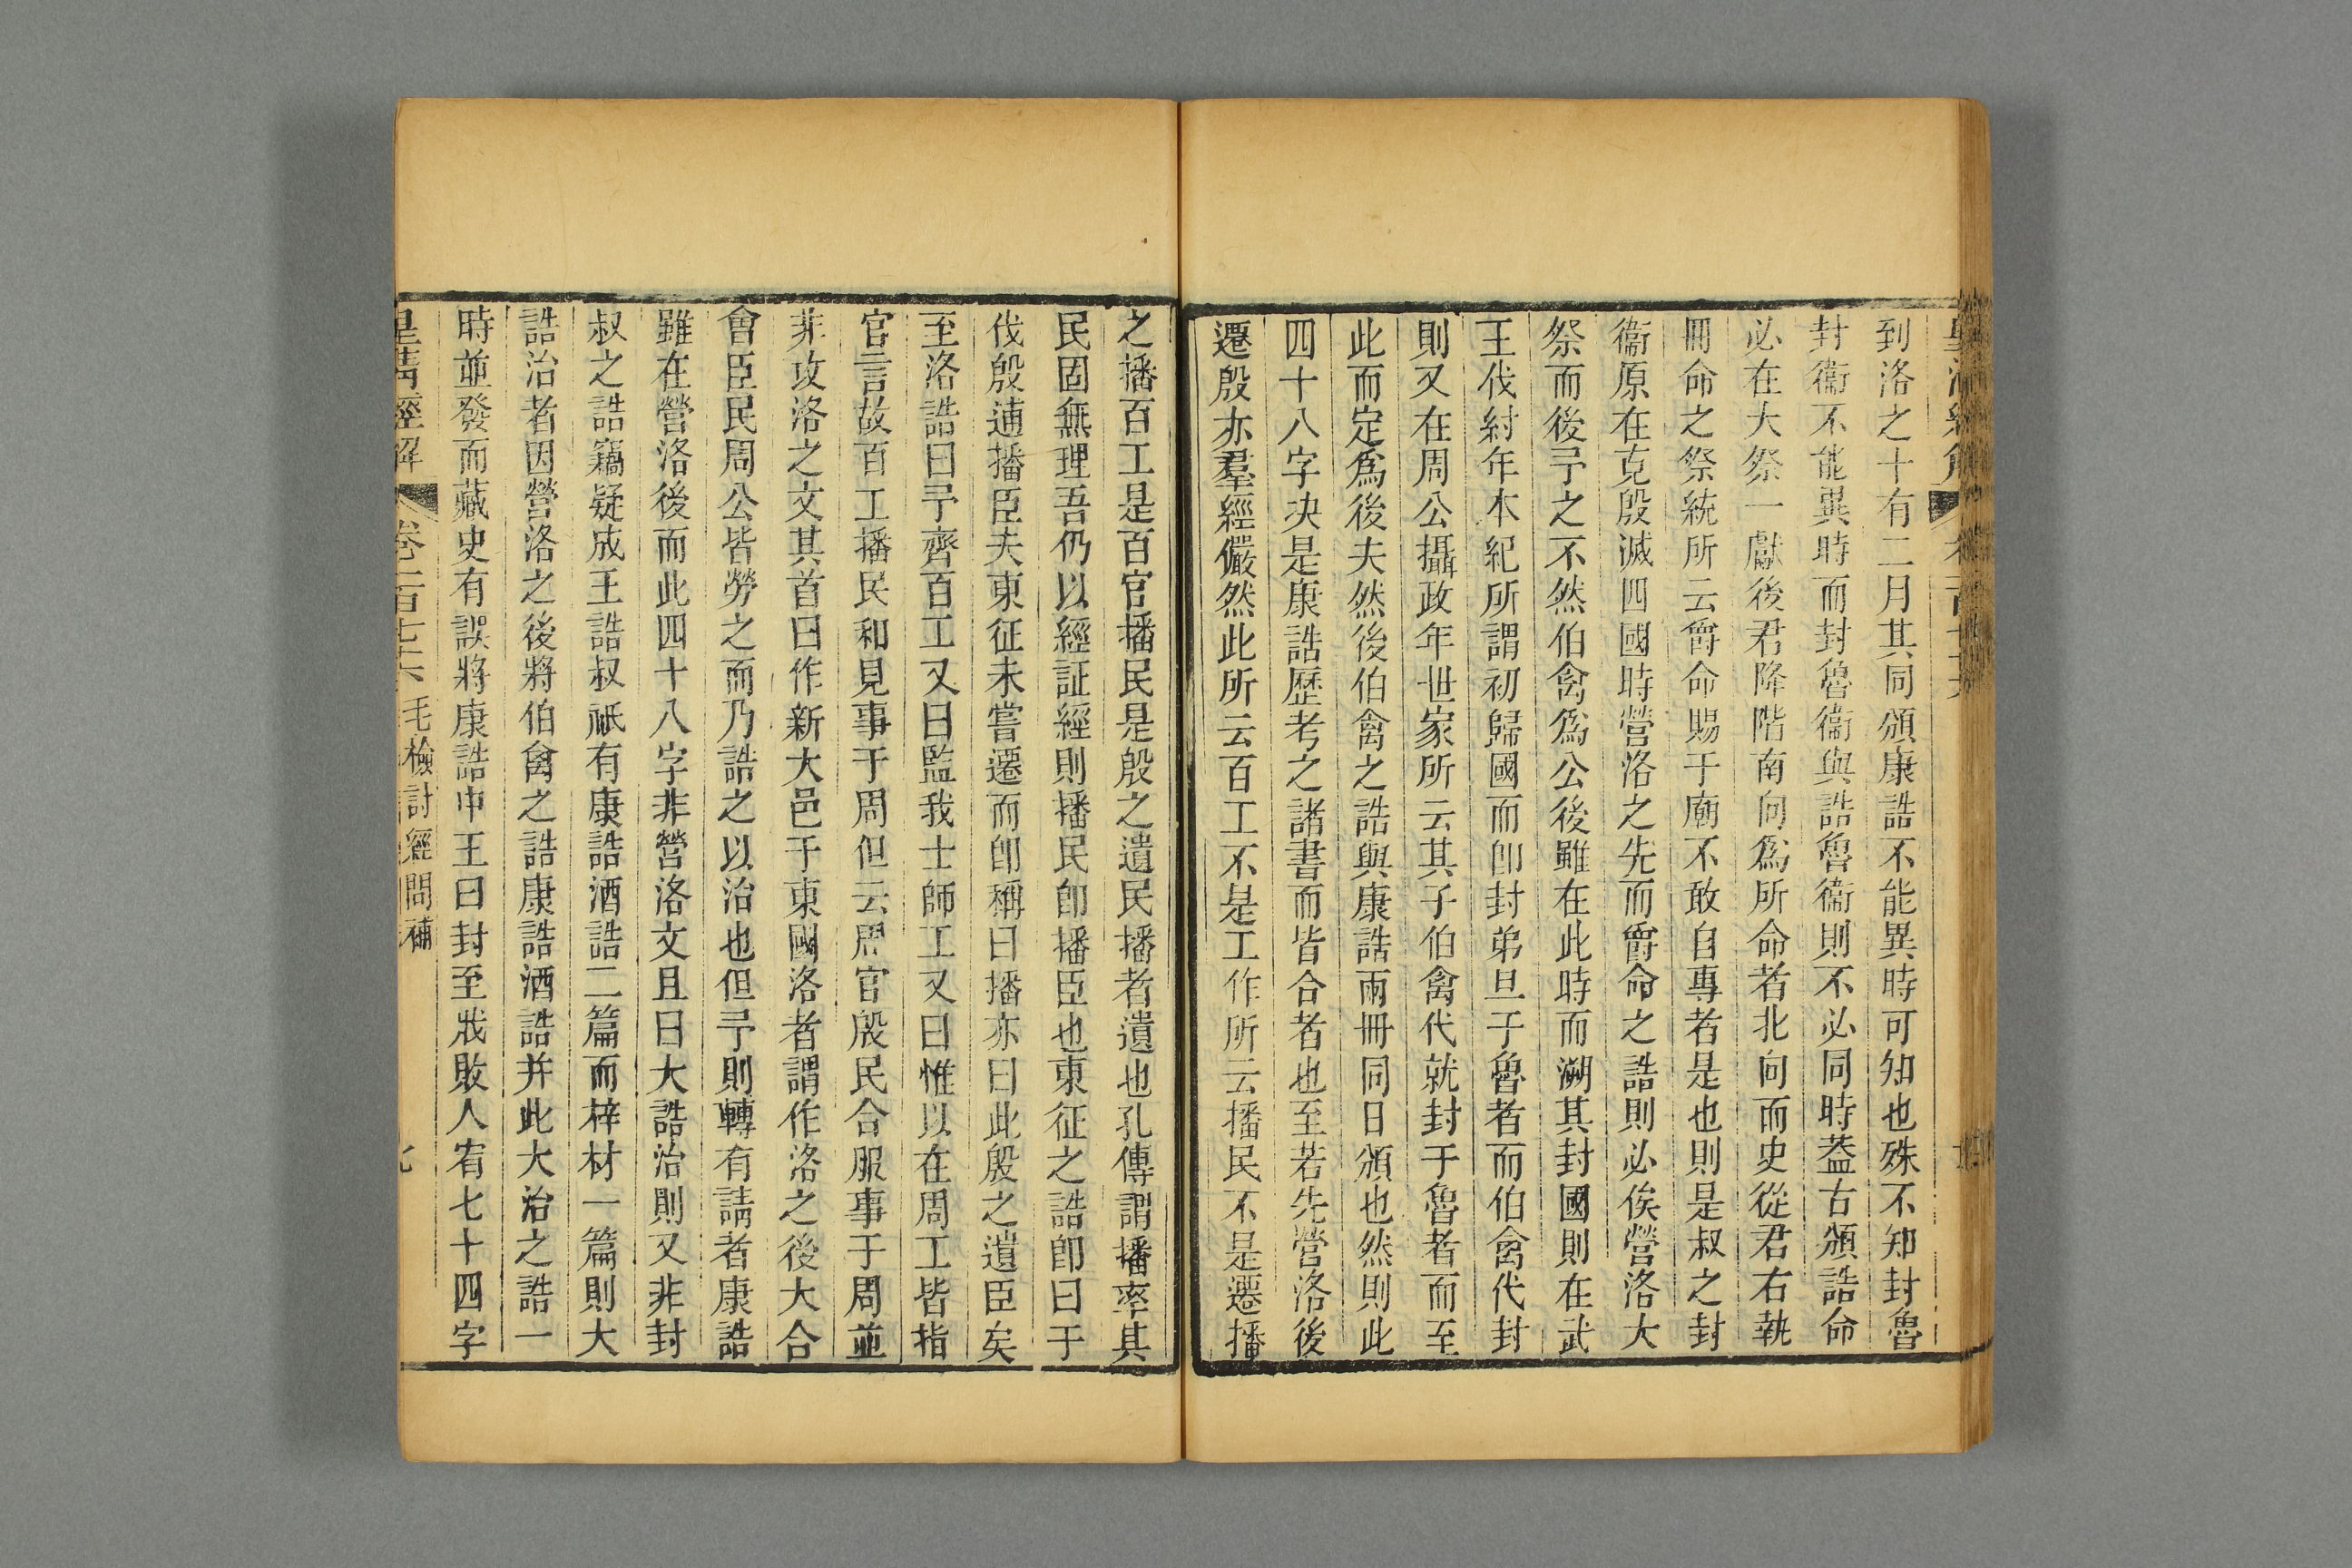 到洛之十有二月其同頒康誥不能異時可知也殊不知封魯
封衞不能異時而封魯衞與誥魯衞則不必同時葢古頒誥命
必在大祭一獻後君降階南向爲所命者北向而史從君右執
冊命之祭統所云爵命賜于廟不敢自專者是也則是叔之封
衞原在克殷滅四國時營洛之先而爵命之誥則必俟營洛大
祭而後予之不然伯禽爲公後雖在此時而溯其封國則在武
王伐紂年本紀所謂初歸國而卽封弟旦于魯者而伯禽代封
則又在周公攝政年世家所云其子伯禽代就封于魯者而至
此而定爲後夫然後伯禽之誥與康誥兩冊同日頒也然則此
四十八字决是康誥歷考之諸書而皆合者也至若先營洛後
遷殷亦羣經儼然此所云百工不是工作所云播民不是遷播
之播百工是百官播民是殷之遺民播者遺也孔傳謂播率其
民固無理吾仍以經証經則播民卽播臣也東征之誥卽曰于
伐殷逋播臣夫東征未嘗遷而卽稱曰播亦曰此殷之遺臣矣
至洛誥曰予齊百工又曰監我士師工又曰惟以在周工皆指
官言故百工播民和見事于周但云周官殷民合服事于周並
非攻洛之文其首曰作新大邑于東國洛者謂作洛之後大合
會臣民周公皆勞之而乃誥之以治也但予則轉有請者康誥
雖在營洛後而此四十八字非營洛文且曰大誥治則又非封
叔之誥竊疑成王誥叔祇有康誥酒誥二篇而梓材一篇則大
誥治者因營洛之後將伯禽之誥康誥酒誥并此大治之誥一
時並發而藏史有誤將康誥中王曰封至戕敗人宥七十四字
皇淸經解 卷一百七十六 毛檢討經問補